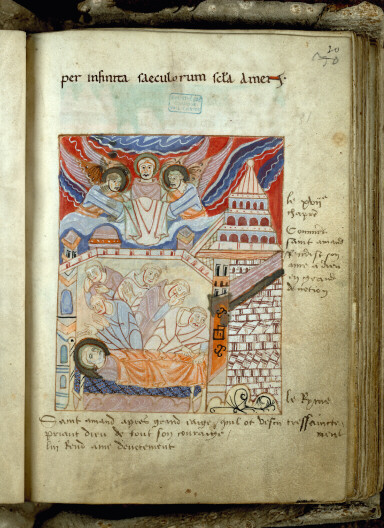 per infinita saeculorum scla amen
le xviie
chapre
Comment
saint amand
rendist son
ame a dieu
en grand
devotion
le Ryme
Saint amand apres grand eaige quil ot vescu tressainctement
priant dieu de tout son couraige
lui rend ame devotement